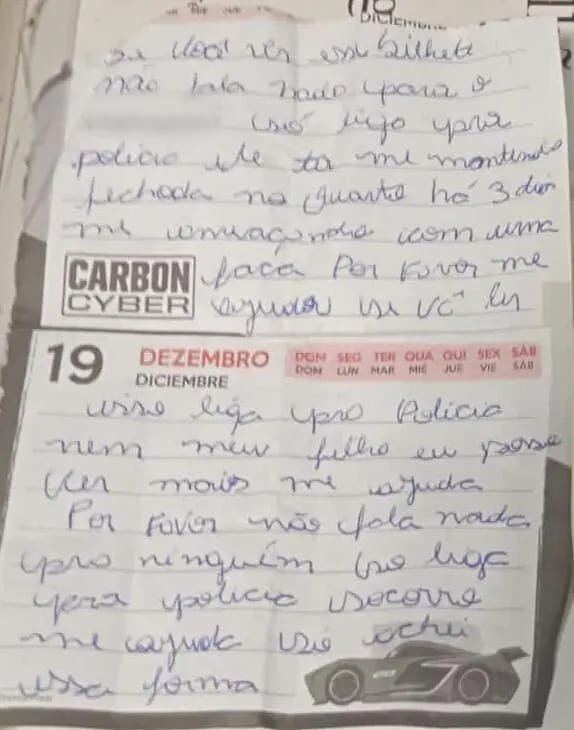 DICIEMBRE
se você ler esse bilhete
não fala nado para o
só liga para
policia ele ta me mantendo
fechada no quarto há 3 dias
me ameaçando com uma
faca Por Favor me
CARBON
CYBER
ajudar se vc ler
19 DEZEMBRO DOM SEG TER QUA QUI SEX SÁB
DICIEMBRE DOM LUN MAR MIÉ JUE VIE SÁB
isso liga pro Policia
nem meu filho eu posso
ver mais me ajuda
Por Favor não fala nada
pro ninguém só liga
para policia socorro
me ajuda só achei
essa forma